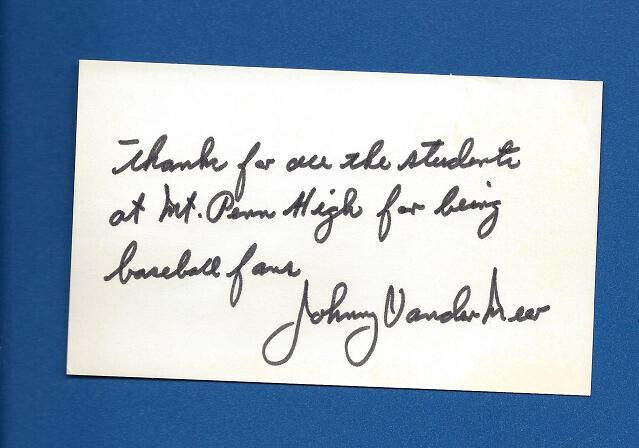 Thanks for all the students
at Mt. Penn High for being
baseball fans
Johnny VanderMeer